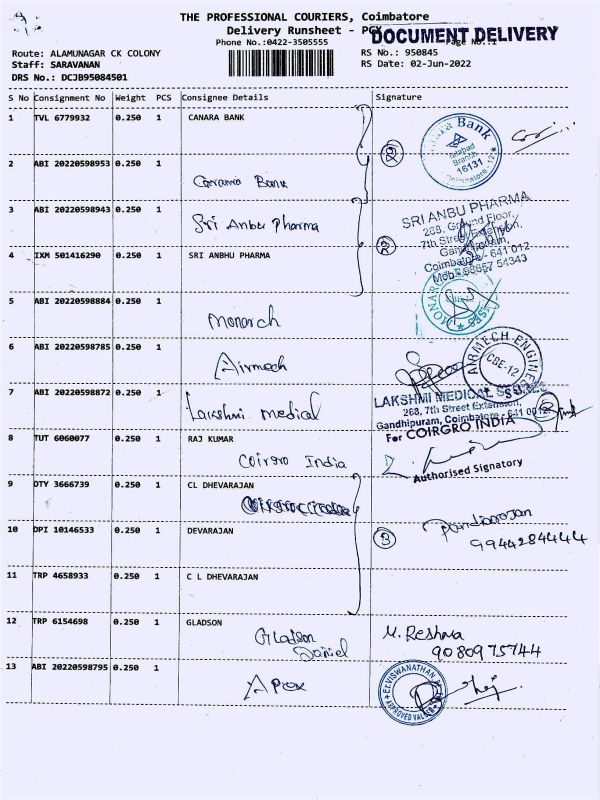 THE PROFESSIONAL COURIERS, Coimbatore
Delivery Runsheet - PCX
DOCUMENT DELIVERY
Phone No.:0422-3505555
Page No.:1
Route: ALAMUNAGAR CK COLONY
RS No.: 950845
Staff: SARAVANAN
RS Date: 02-Jun-2022
DRS No.: DCJB95084501
S No Consignment No Weight PCS Consignee Details Signature
1 TVL 6779932 0.250 1 CANARA BANK
Bank
Branch
16131
Coimbatore - 12
2 ABI 20220598953 0.250 1
Canara Bank
2
3 ABI 20220598943 0.250 1
Sri Anbu Pharma
SRI ANBU PHARMA
288, Ground Floor,
7th Street Extension,
Gandhipuram,
Coimbatore - 641 012
Mob: 98657 54343
4 IXM 501416290 0.250 1 SRI ANBHU PHARMA
2
5 ABI 20220598884 0.250 1
Monarch
6 ABI 20220598785 0.250 1
Airmech
AIRMECH ENGINE
CBE-12
7 ABI 20220598872 0.250 1
Lakshmi medical
LAKSHMI MEDICAL
268, 7th Street Extension,
Gandhipuram, Coimbatore - 641 012
8 TUT 6060077 0.250 1 RAJ KUMAR
Coirgro India
For COIRGRO INDIA
Authorised Signatory
9 DTY 3666739 0.250 1 CL DHEVARAJAN
10 DPI 10146533 0.250 1 DEVARAJAN
3
9944284444
11 TRP 4658933 0.250 1 C L DHEVARAJAN
12 TRP 6154698 0.250 1 GLADSON
Gladson
Daniel
M. Reshma
9080975744
13 ABI 20220598795 0.250 1
Apex
ELVISWANATHAN
APPROVED VALUER